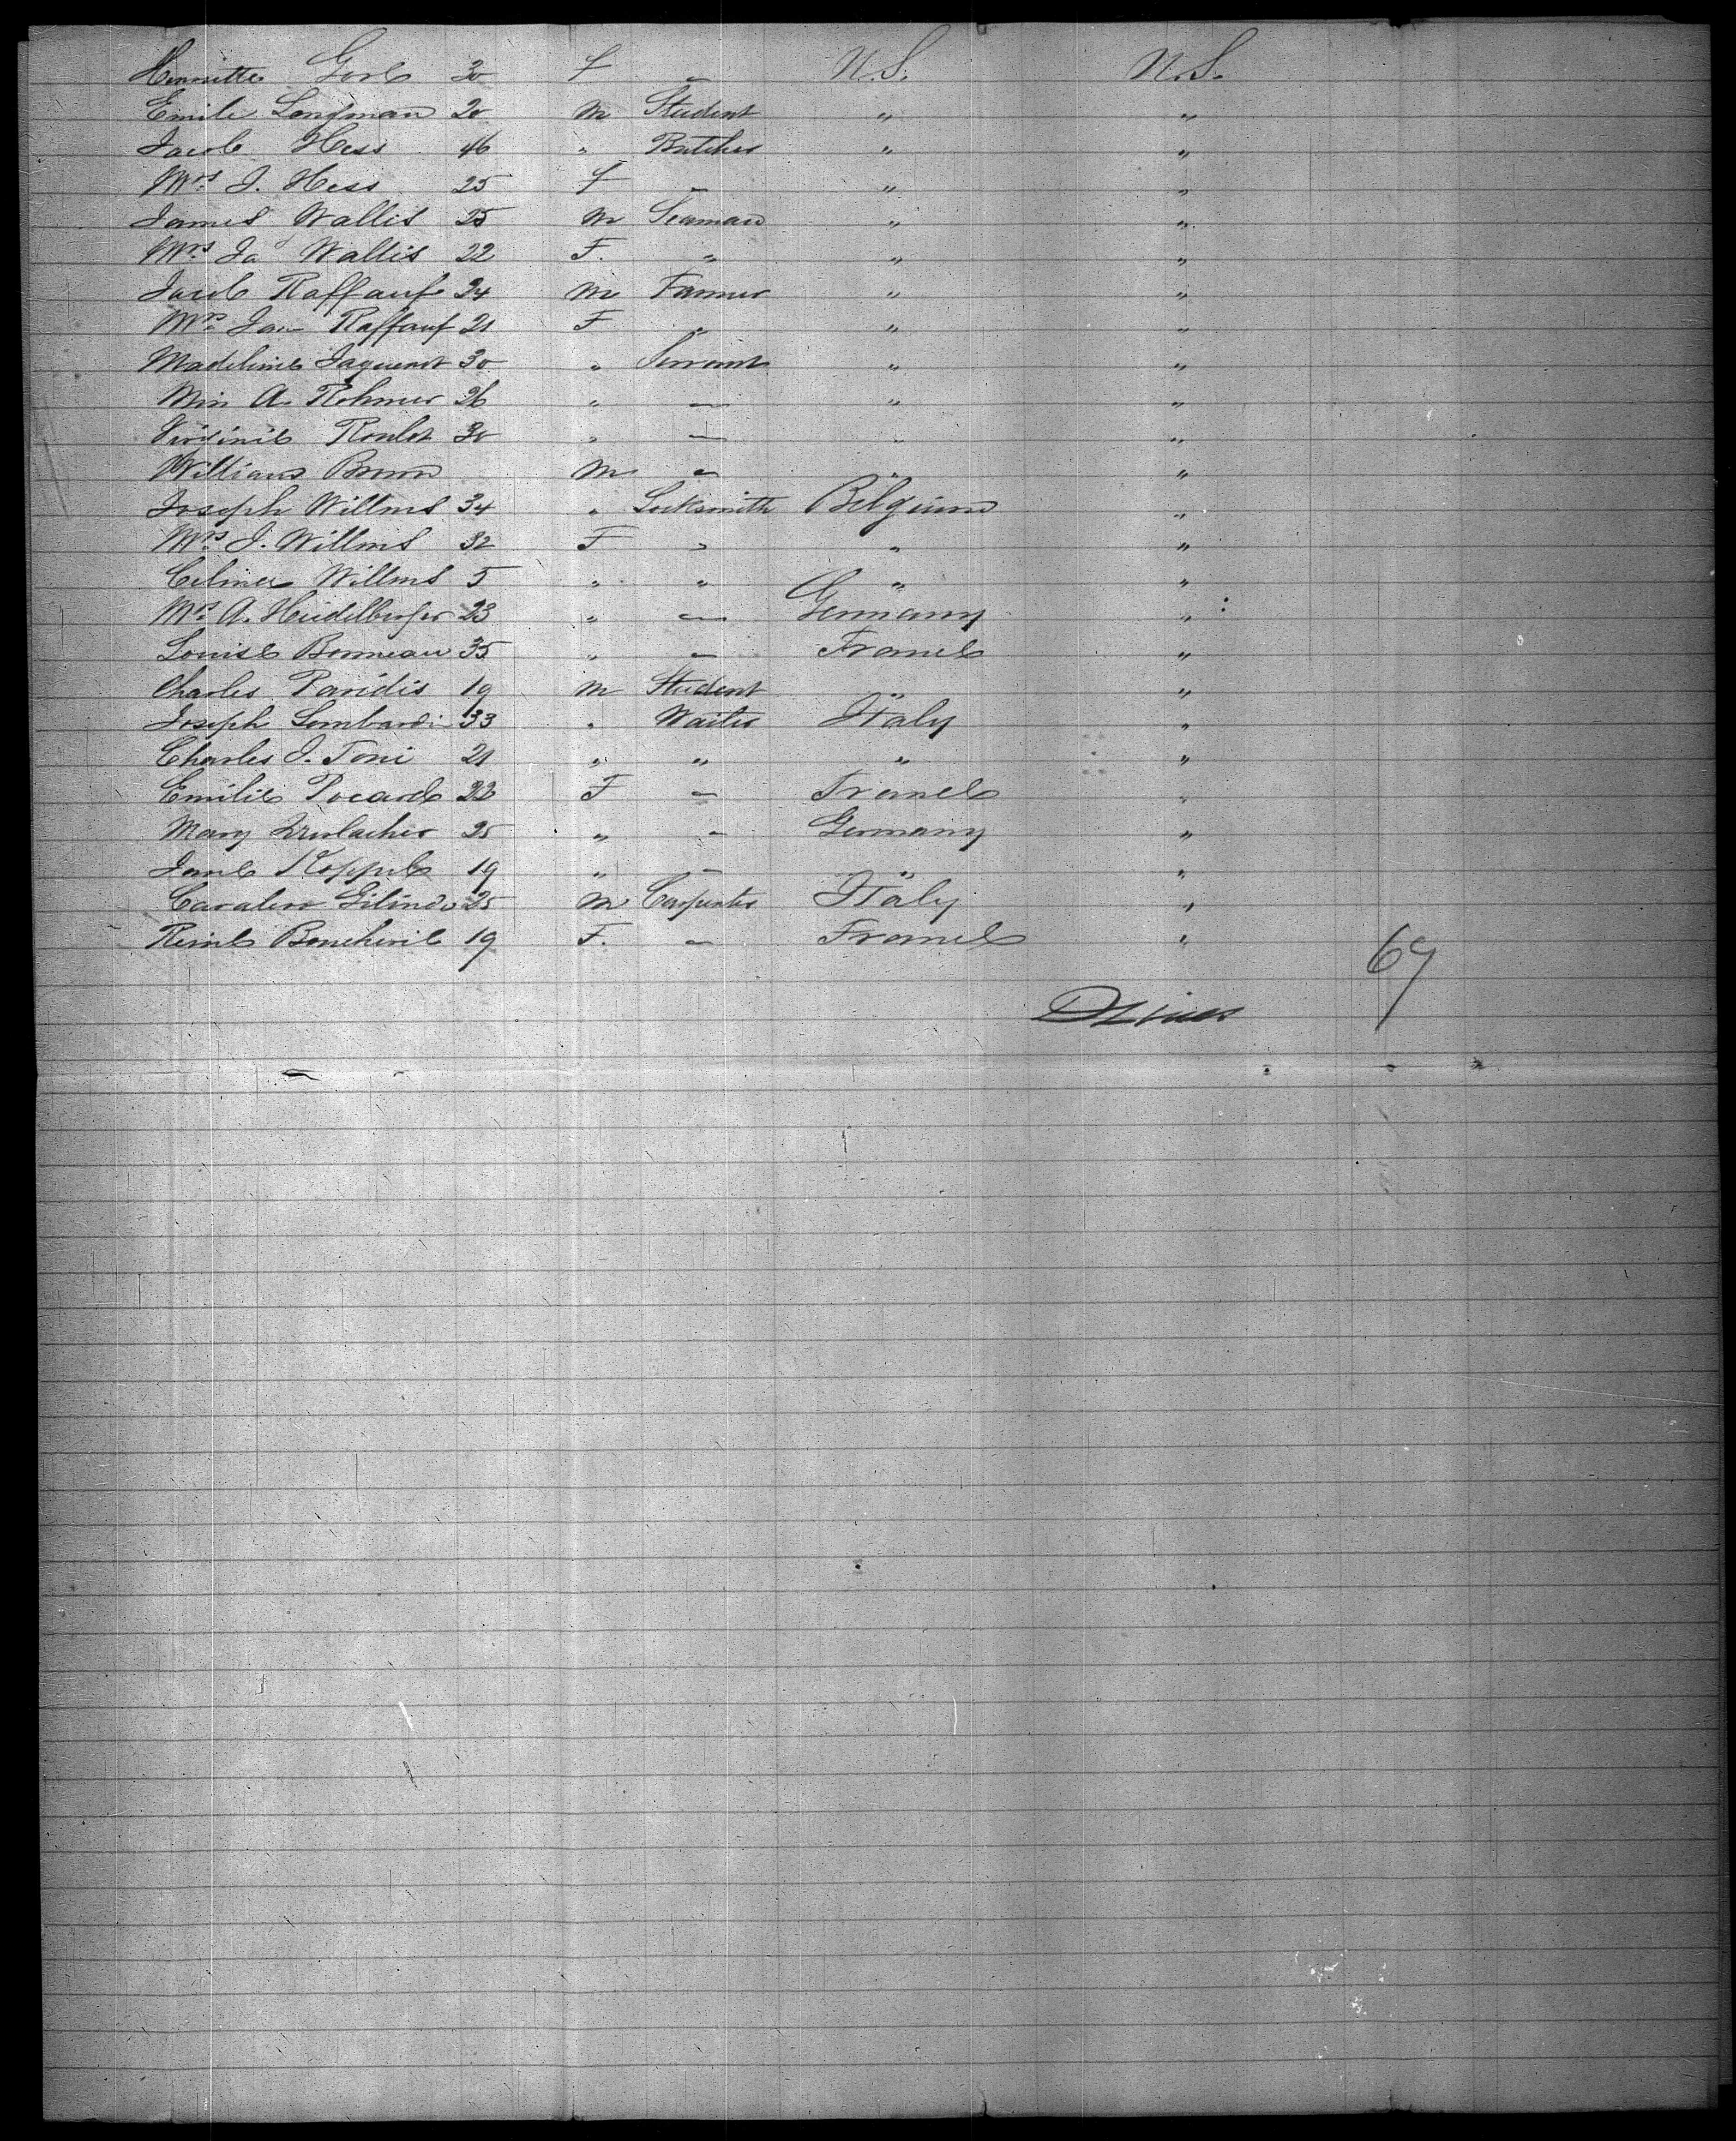 Henriette Gorb 30 f " U.S. U.S.
Emile Longman 20 m Student " "
Jacob Hess 46 " Butcher " "
Mrs J. Hess 25 f " " "
James Wallis 25 m Seaman " "
Mrs Ja Wallis 22 F. " " "
Jacob Raffauf 24 m Farmer " "
Mrs Jac Raffauf 21 F " " "
Madeline Jaquenot 30 " Servant " "
Miss A. Rohmer 26 " — " "
Virginie Roulot 30 " — " "
William Brown m — " "
Joseph Willms 34 " Locksmith Belgium "
Mrs J. Willms 32 F " " "
Celina Willms 5 " " " "
Mrs A. Heidelberger 23 " — Germany "
Louise Bonneau 35 " — France "
Charles Paridis 19 m Student " "
Joseph Lombardi 33 " Waiter Italy "
Charles J. Toni 21 " " " "
Emilie Pocard 22 F — France "
Mary 25 " — Germany "
Jane Koppel 19 " — " "
Cavalero Gilindo 25 m Carpenter Italy "
Reine 19 F. — France "
69